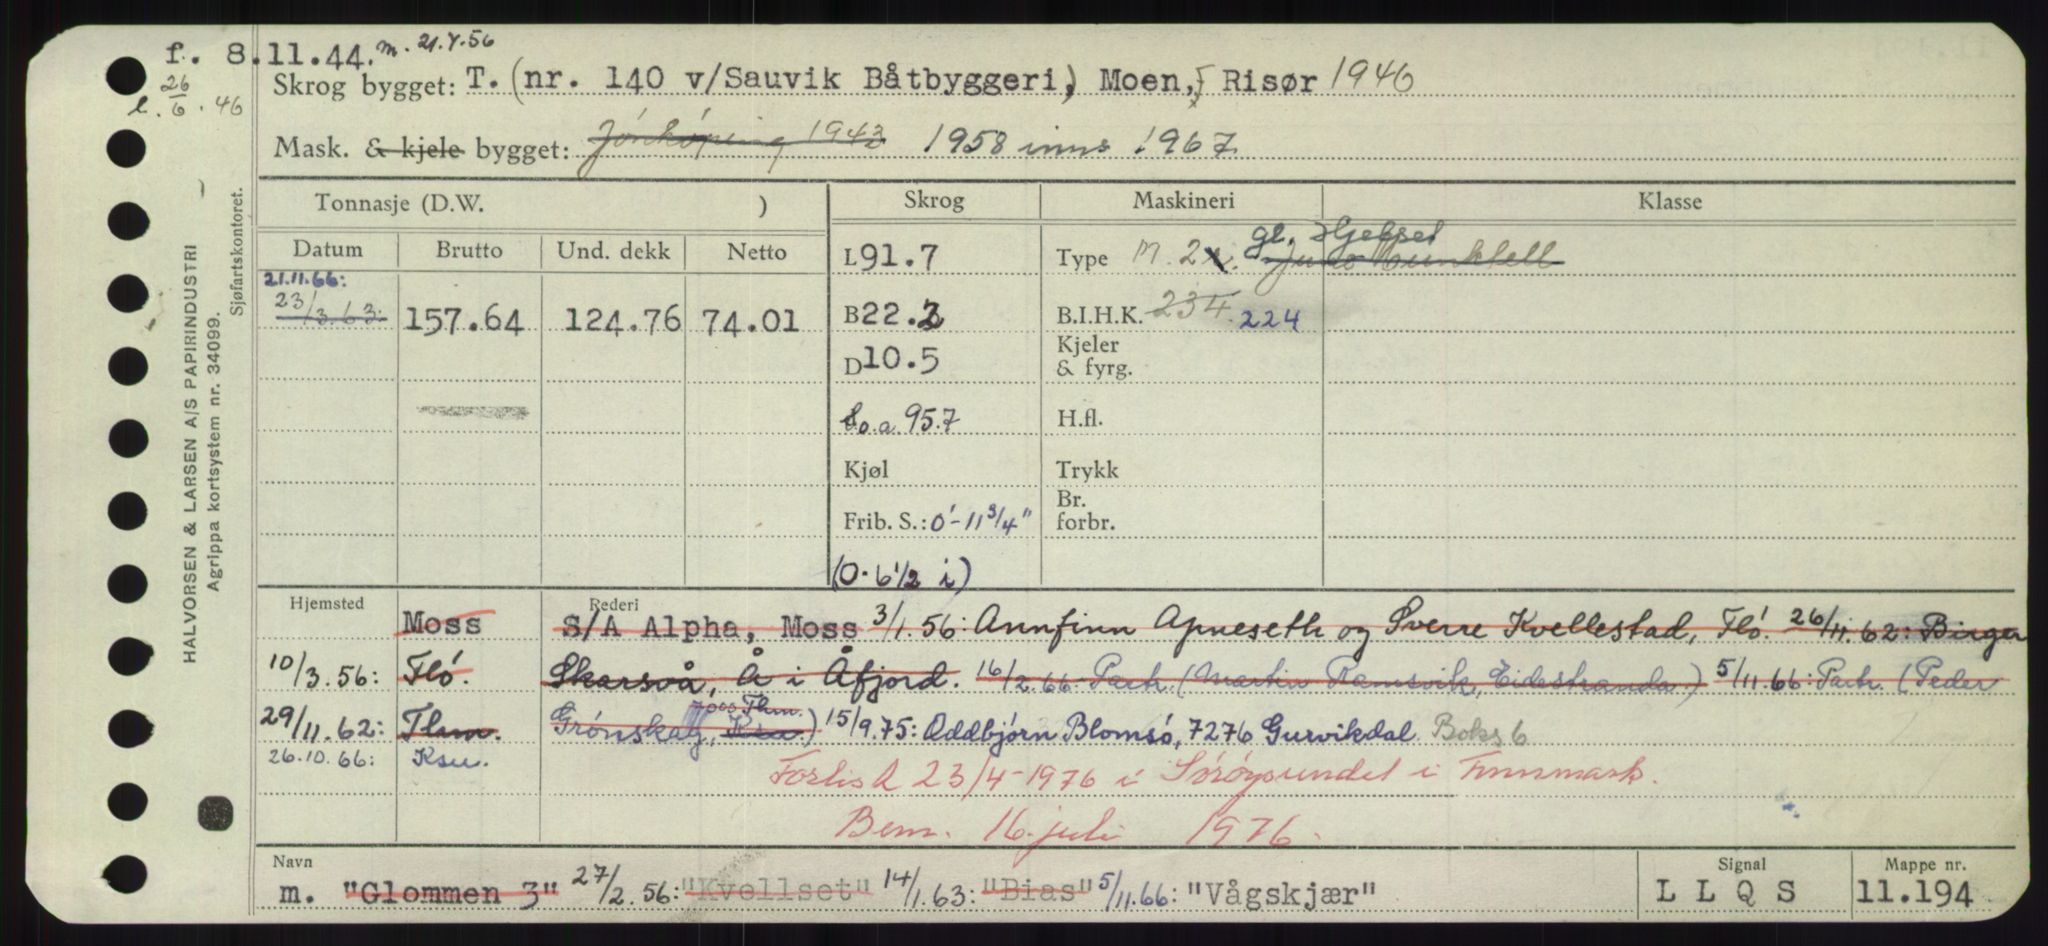 f. 8.11.44. m. 21.4.56
l. 26/6.46
Skrog bygget: T. (nr. 140 v/Sauvik Båtbyggeri) Moen, Risør 1946
Mask. & kjele bygget: Jönköping 1943 1958 inns 1967
Tonnasje (D.W. ) Skrog Maskineri Klasse
Datum Brutto Und. dekk Netto
L 91.7 Type M. 2 gl. Hjelset
21.11.66:
23/3.63: 157.64 124.76 74.01 B 22.2 B.I.H.K. 234. 224
D 10.5 Kjeler & fyrg.
L.o.a. 95.7 H.fl.
Kjøl Trykk
Frib. S.: 0'-11 3/4" Br. forbr.
(0-6 1/2 i)
Hjemsted Rederi
Moss S/A Alpha, Moss 3/1.56: Annfinn Apneseth og Sverre Kvellestad, Flö. 26/11.62: Birger
10/3.56: Flö. Skarsvå, Å i Åfjord. 16/2.66: Partr. (Martin Ramsvik, Eidestranda.) 5/11.66: Partr. (Peder
7000 Thm.
29/11.62: Thm. Grönskag, Ksu.) 15/9.75: Oddbjörn Blomsö, 7276 Gurvikdal Boks 6
26.10.66: Ksu. Forlist 23/4-1976 i Söröysundet i Finnmark.
Bem. 16. juli 1976.
Navn Signal Mappe nr.
m. "Glommen 3" 27/2.56: "Kvellset" 14/1.63: "Bias" 5/11.66: "Vågskjær" L L Q S 11.194
HALVORSEN & LARSEN A/S PAPIRINDUSTRI
Agrippa kortsystem nr. 34099.
Sjøfartskontoret.